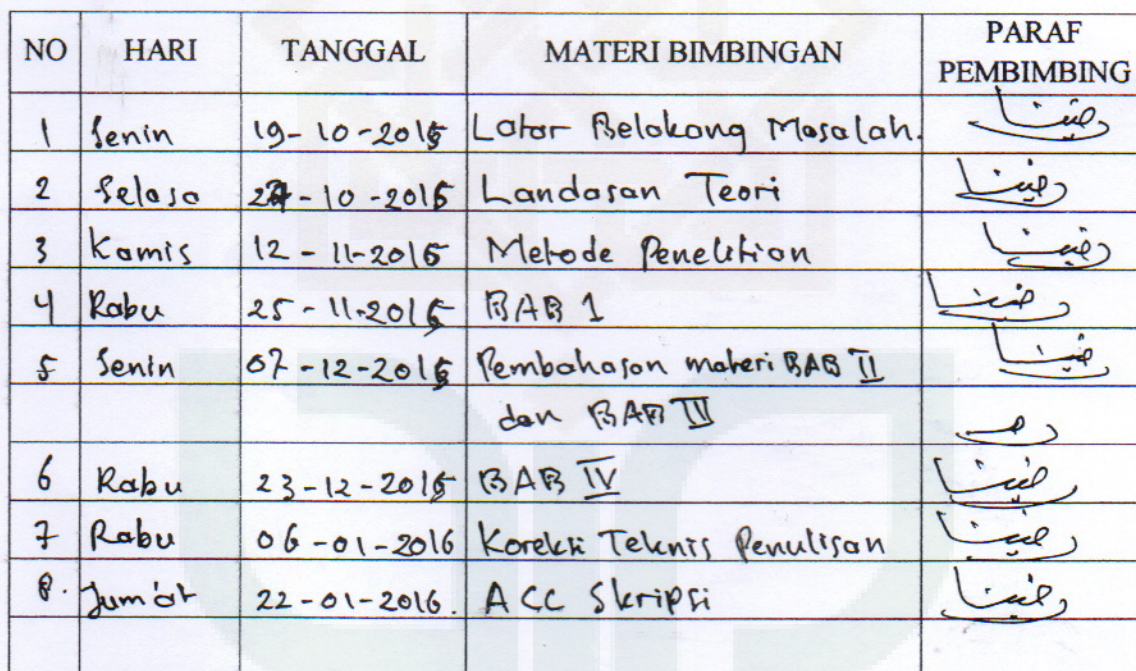 NO HARI TANGGAL MATERI BIMBINGAN PARAF PEMBIMBING
1 Senin 19-10-2015 Latar Belakang Masalah.
2 Selasa 27-10-2015 Landasan Teori
3 Kamis 12-11-2015 Metode Penelitian
4 Rabu 25-11-2015 BAB 1
5 Senin 07-12-2015 Pembahasan materi BAB II
dan BAB III
6 Rabu 23-12-2015 BAB IV
7 Rabu 06-01-2016 Koreksi Teknis Penulisan
8. Jum'at 22-01-2016. ACC Skripsi